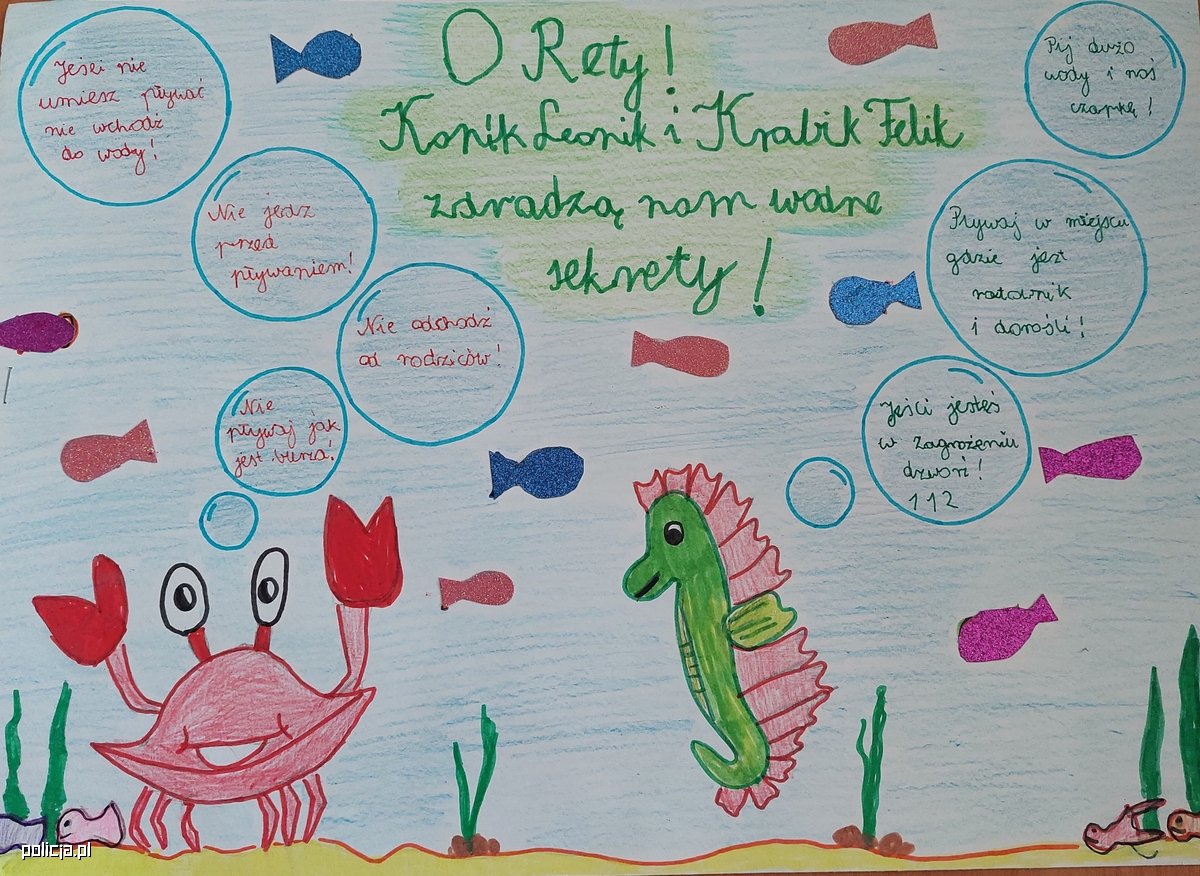 O Rety!
Konik Leonik i Krabik Felik
zdradzą nam wodne
sekrety!
Jeśli nie
umiesz pływać
nie wchodź
do wody!
Nie jedz
przed
pływaniem!
Nie odchodź
od rodziców!
Nie
pływaj jak
jest burza!
Pij dużo
wody i noś
czapkę!
Pływaj w miejscu
gdzie jest
ratownik
i dorośli!
Jeśli jesteś
w zagrożeniu
dzwoń!
112
policja.pl